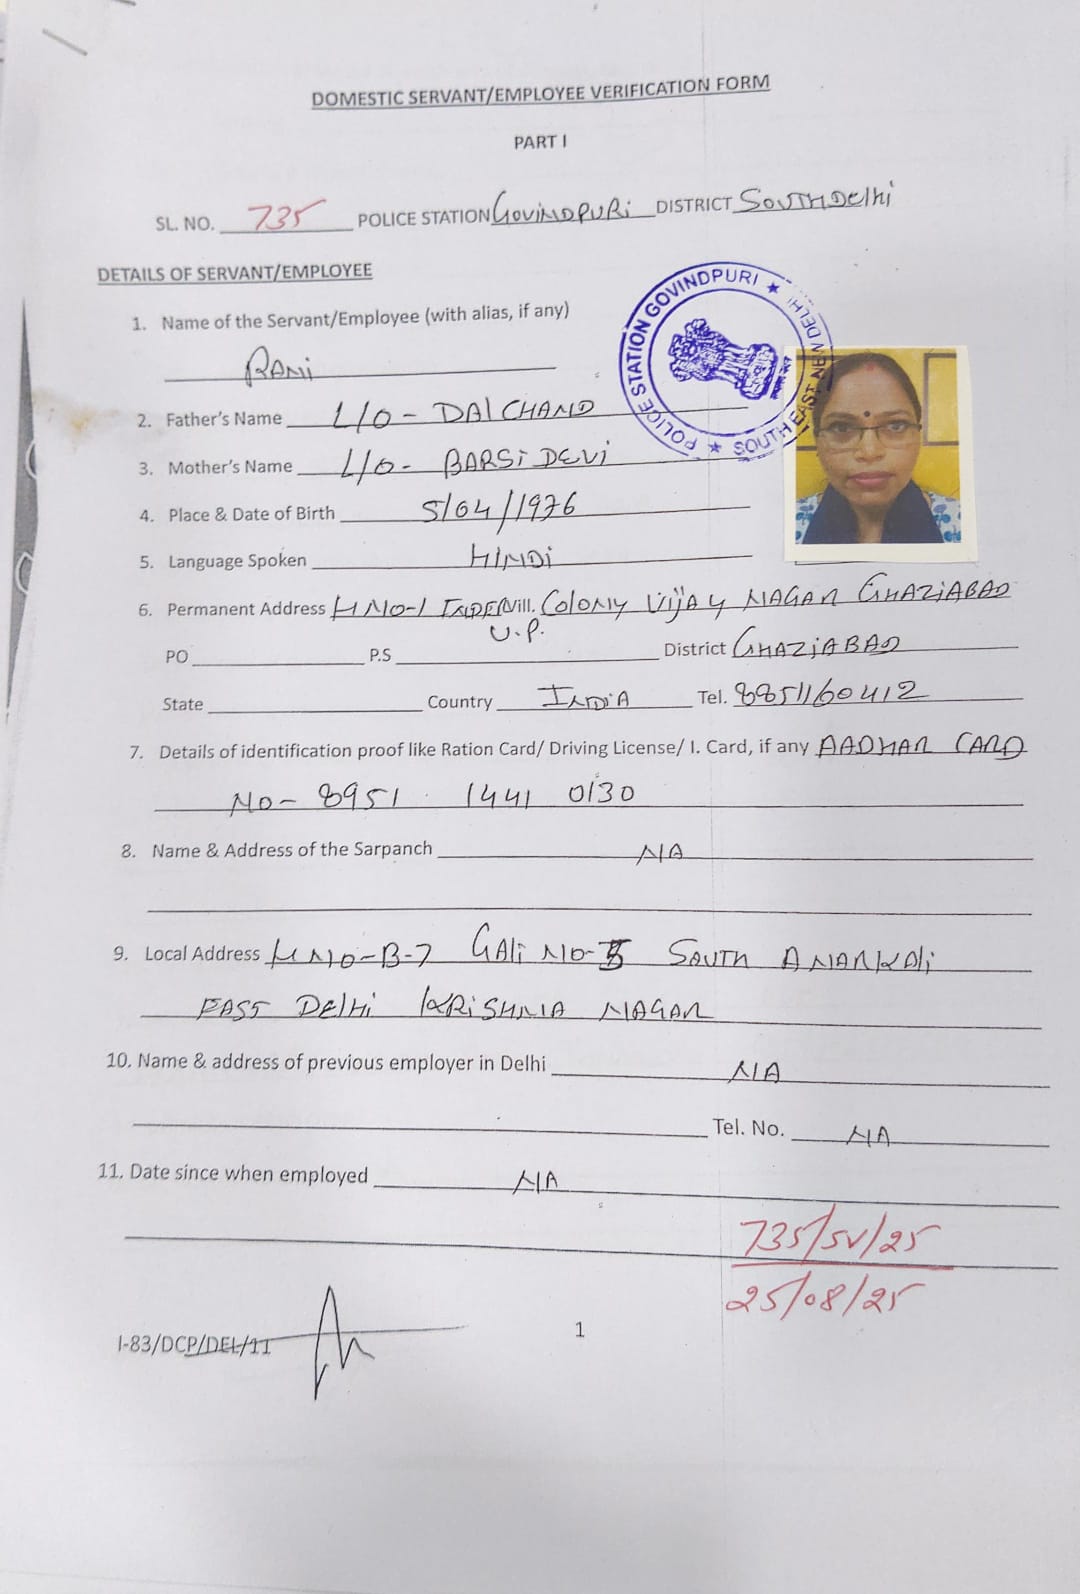 DOMESTIC SERVANT/EMPLOYEE VERIFICATION FORM
PART I
SL. NO. 735 POLICE STATION GOVINDPURI DISTRICT SOUTH DElhi
DETAILS OF SERVANT/EMPLOYEE
POLICE STATION GOVINDPURI ★ SOUTH EAST NEW DELHI ★
1. Name of the Servant/Employee (with alias, if any)
RANI
2. Father's Name L/O - DAlCHAND
3. Mother's Name L/O - BARSi DEVi
4. Place & Date of Birth 5/04/1976
5. Language Spoken HINDi
6. Permanent Address H NO-1 Vill. COlONY VijAY NAGAR GHAZiABAD
U.P.
PO P.S District GHAZiABAD
State Country INDiA Tel. 8851160412
7. Details of identification proof like Ration Card/ Driving License/ I. Card, if any AADHAR CARD
NO - 8951 1441 0130
8. Name & Address of the Sarpanch NA
9. Local Address H NO-B-7 GAli NO-5 SOUTH ANARKAli
EAST DElHi KRiSHNA NAGAR
10. Name & address of previous employer in Delhi NA
Tel. No. NA
11. Date since when employed NA
735/SV/25
25/08/25
I-83/DCP/DEL/11
1